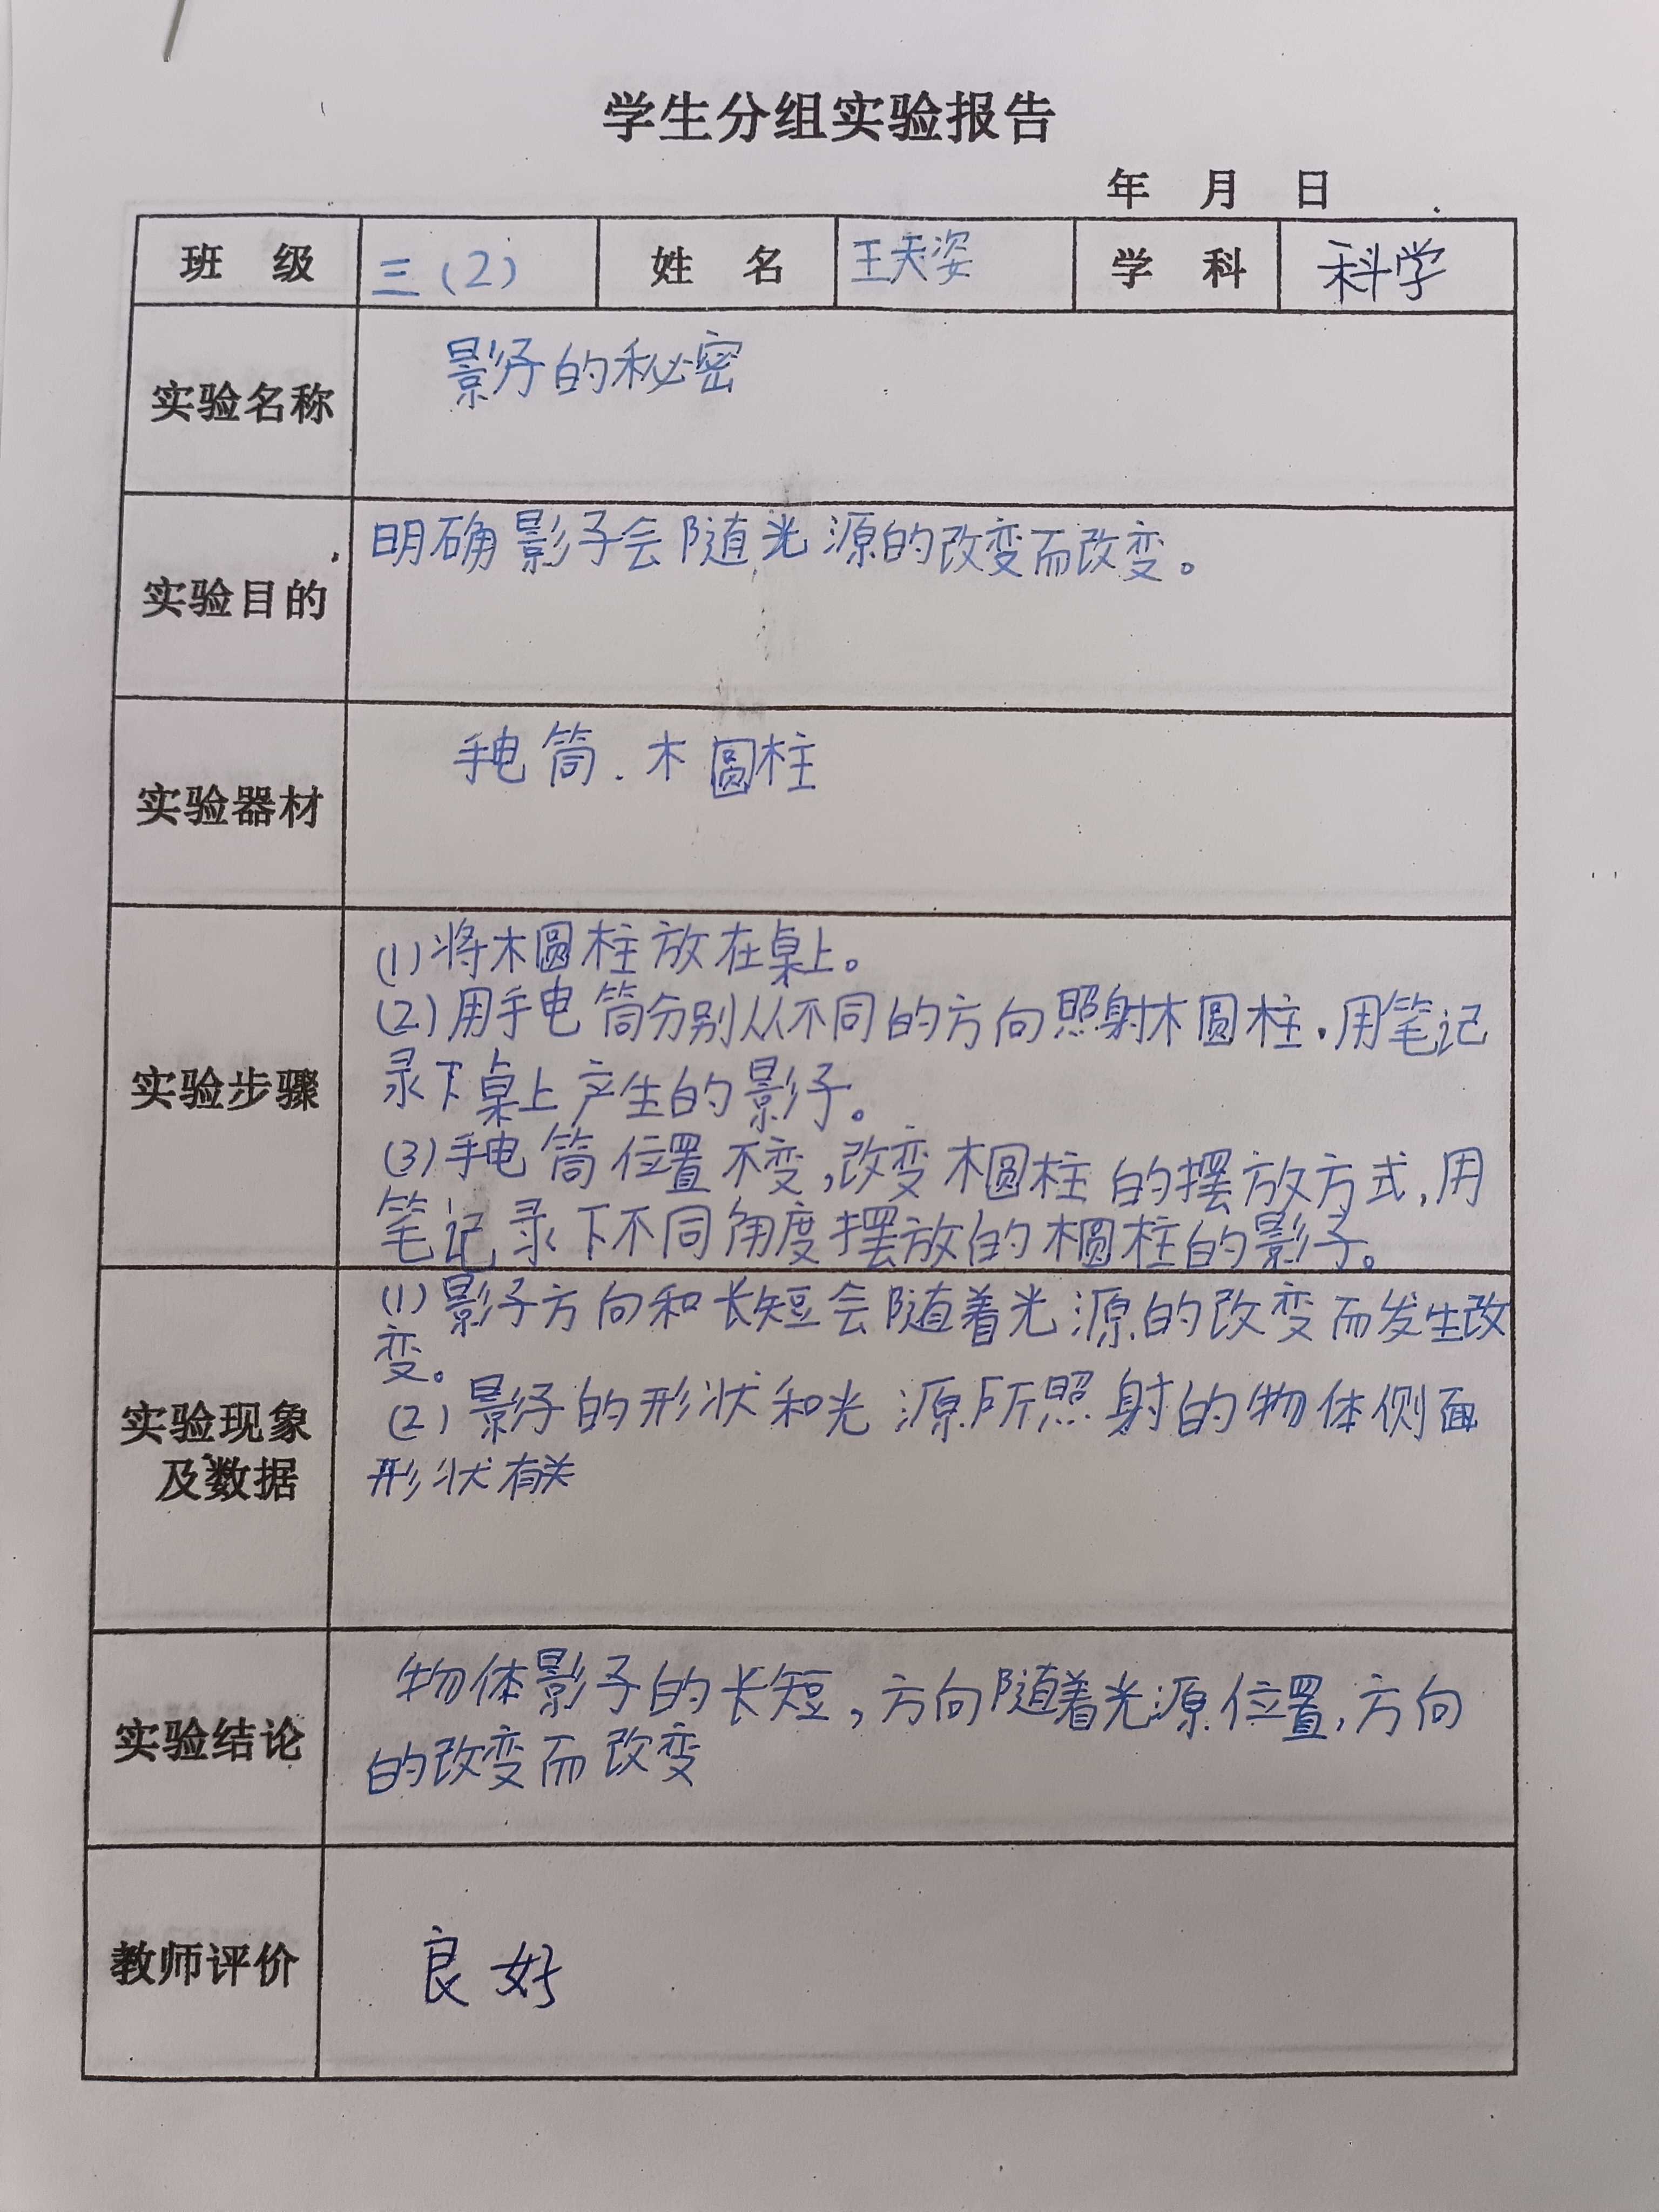 学生分组实验报告
年 月 日
班 级 三(2) 姓 名 王天姿 学 科 科学
实验名称 影子的秘密
实验目的 明确影子会随光源的改变而改变。
实验器材 手电筒.木圆柱
实验步骤
(1)将木圆柱放在桌上。
(2)用手电筒分别从不同的方向照射木圆柱.用笔记
录下桌上产生的影子。
(3)手电筒位置不变,改变木圆柱的摆放方式,用
笔记录下不同角度摆放的木圆柱的影子。
实验现象
及数据
(1)影子方向和长短会随着光源的改变而发生改
变。
(2)影子的形状和光源所照射的物体侧面
形状有关
实验结论
物体影子的长短,方向随着光源位置,方向
的改变而改变
教师评价 良好